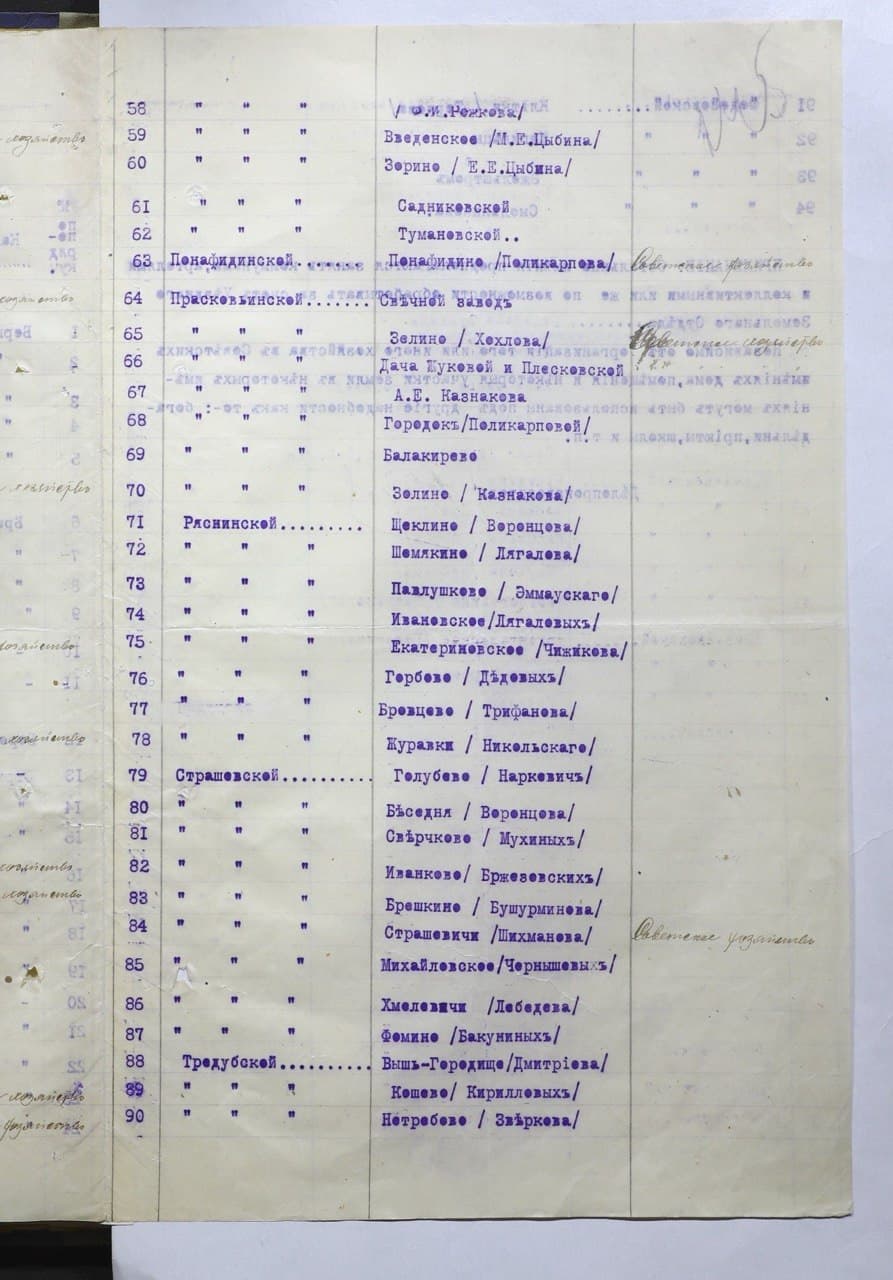 58 " " " / Ф.И.Рожкова/
хозяйство
59 " " " Введенское /М.Е.Цыбина/
60 " " " Зорино / Е.Е.Цыбина/
61 " " " Садниковской
62 " " " Тумановской..
63 Понафидинской........ Понафидино /Поликарпова/ Советское хозяйство
хозяйство
64 Прасковьинской....... Свѣчной заводъ
65 " " " Зелино / Хохлова/ Советское хозяйство
66 " " " Дача Жуковой и Плесковской
67 " " " А.Е. Казнакова
68 " " " Городокъ/Поликарповой/
69 " " " Балакирево
хозяйство
70 " " " Золино / Казнакова/
71 Ряснинской......... Щеклино / Воронцова/
72 " " " Шомякино / Лягалова/
73 " " " Павлушково / Эммаускаго/
74 " " " Ивановское/Лягаловыхъ/
хозяйство
75 " " " Екатериновское /Чижикова/
76 " " " Горбово / Дѣдовыхъ/
77 " " " Бровцево / Трифанова/
хозяйство
78 " " " Журавки / Никольскаго/
79 Страшевской.......... Голубево / Наркевичъ/
80 " " " Бѣседня / Воронцова/
81 " " " Свѣрчково / Мухиныхъ/
хозяйство
82 " " " Иванково/ Бржезовскихъ/
хозяйство
83 " " " Брошкино / Бушурминова/
84 " " " Страшевичи /Шихманова/ Советское хозяйство
85 " " " Михайловское/Чернышовыхъ/
86 " " " Хмелевичи /Лебедева/
87 " " " Фомино /Бакуниныхъ/
88 Тредубской.......... Вышь-Городище/Дмитрiева/
хозяйство
89 " " " Кошево/ Кирилловыхъ/
хозяйство
90 " " " Нотребово / Звѣркова/